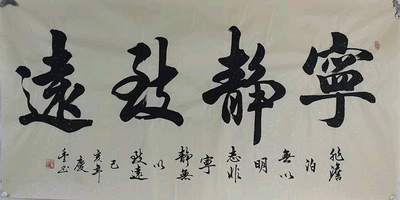 寧靜致遠
非澹
泊
無以
明
志非
寧
靜無
以
致遠
己
亥年
慶